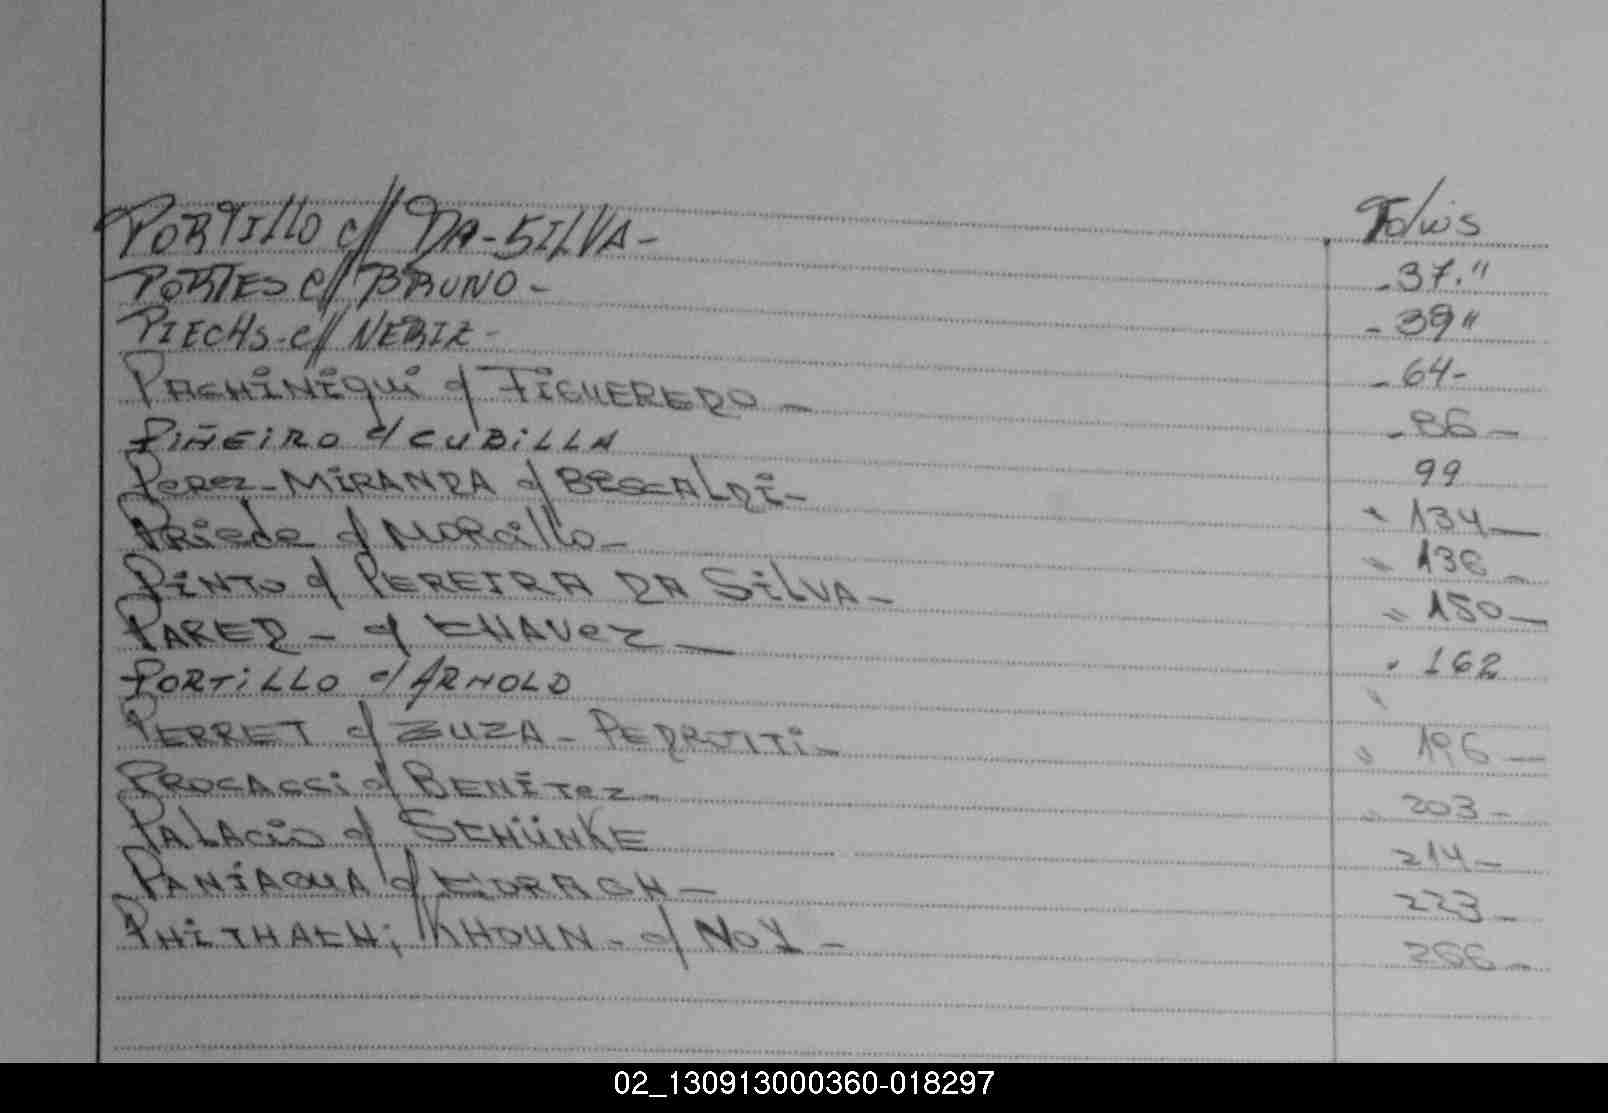 Folios
PORTILLO c// DA-SILVA- -37."
PORTES c// BRUNO- -39"
PIECHS-c// NEBIZ- -64-
PACHINIQUI c/ FIGUEREDO- -86-
PIÑEIRO c/ CUBILLA 99
PEREZ-MIRANDA c/ " 134-
PRIEDE c/ MORCILLO- " 136-
PINTO c/ PEREIRA DA SILVA- " 150-
PARED- c/ CHAVEZ- " 162
PORTILLO c/ ARNOLD "
PERRET c/ ZUZA-PEDROTTI- " 196-
PROCACCI c/ BENÍTEZ- " 203-
PALACIO c/ SCHÜNKE 214-
PANIAGUA c/ 223-
KHOUN- c/ NOY- 266-
02_130913000360-018297